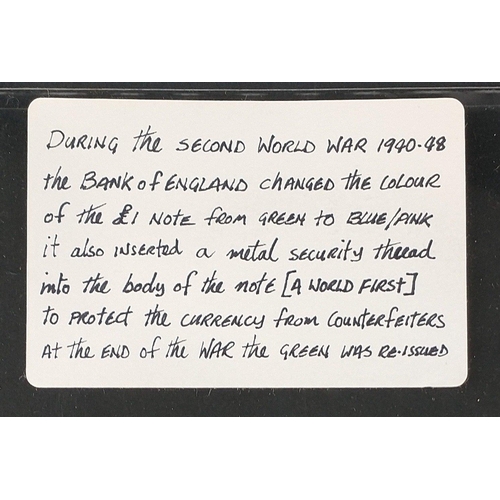 DURING the SECOND WORLD WAR 1940-48
the BANK of ENGLAND CHANGED the COLOUR
of the £1 NOTE FROM GREEN TO BLUE/PINK
it also INSERTED a metal security thread
into the body of the note [A WORLD FIRST]
to PROTECT the CURRENCY from COUNTERFEITERS
AT the END of the WAR the GREEN WAS RE-ISSUED